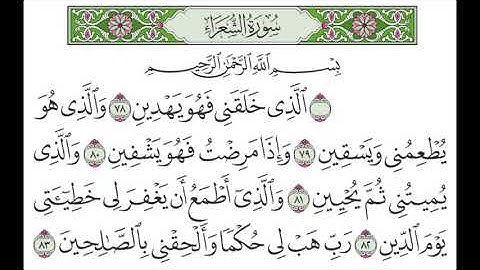 سُورَةُ الشُّعَرَاءِ
بِسْمِ ٱللَّهِ ٱلرَّحْمَٰنِ ٱلرَّحِيمِ
ٱلَّذِى خَلَقَنِى فَهُوَ يَهْدِينِ ٧٨ وَٱلَّذِى هُوَ
يُطْعِمُنِى وَيَسْقِينِ ٧٩ وَإِذَا مَرِضْتُ فَهُوَ يَشْفِينِ ٨٠ وَٱلَّذِى
يُمِيتُنِى ثُمَّ يُحْيِينِ ٨١ وَٱلَّذِىٓ أَطْمَعُ أَن يَغْفِرَ لِى خَطِيٓـَٔتِى
يَوْمَ ٱلدِّينِ ٨٢ رَبِّ هَبْ لِى حُكْمًا وَأَلْحِقْنِى بِٱلصَّـٰلِحِينَ ٨٣